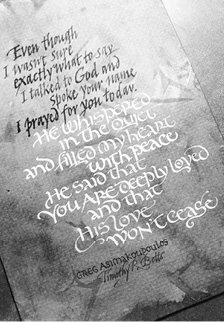 Even though
I wasn't sure
exactly what to say
I talked to God and
Spoke your name
I prayed for you today.
He whispered
in the quiet
and filled my heart
with peace
He said that
You Are deeply loved
and that
His love
won't cease
GREG ASIMAKOUPOULOS
Timothy R. Botts